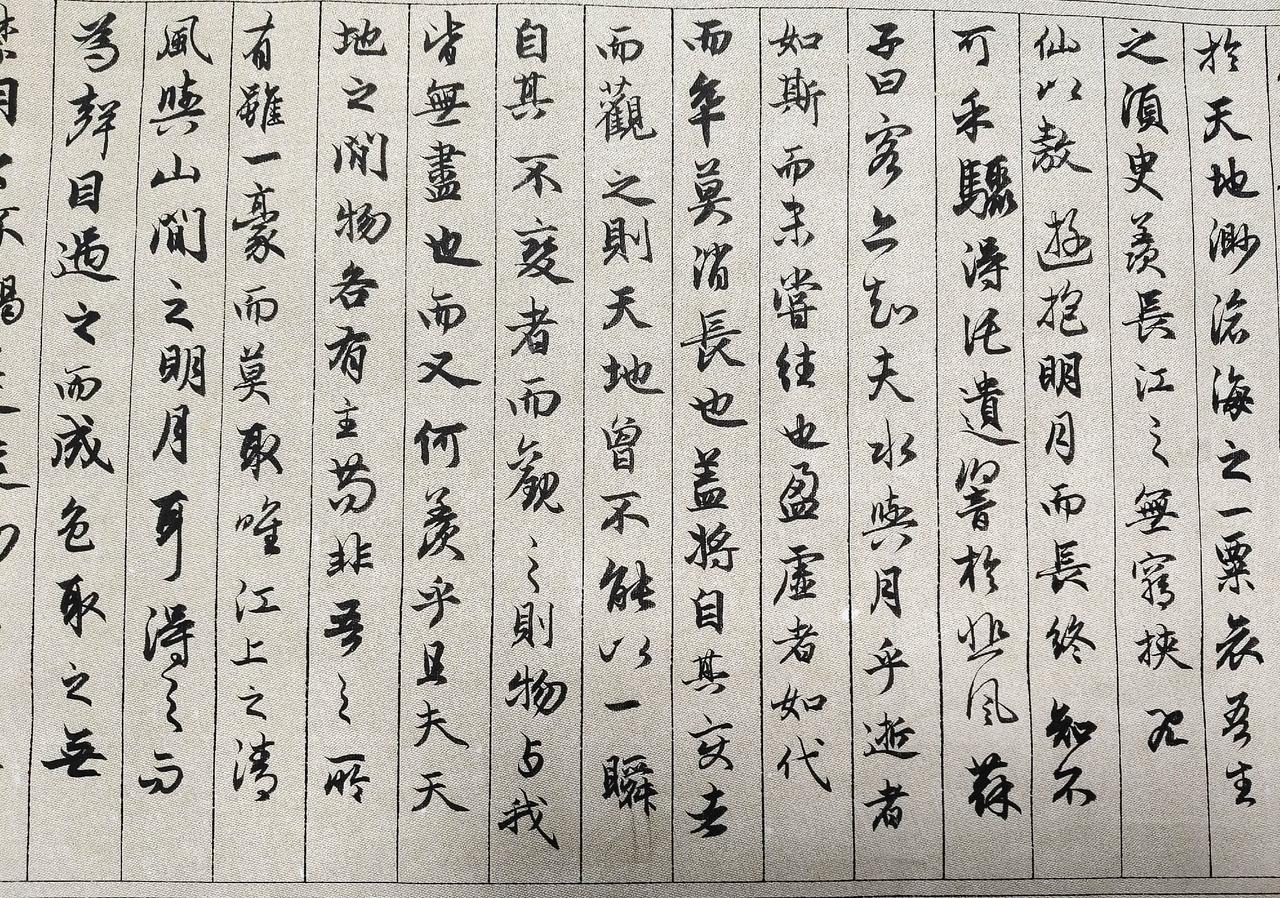 於天地渺滄海之一粟哀吾生
之須臾羨長江之無窮挾飛
仙以敖遊抱明月而長終知不
可乎驟得託遺響於悲風蘇
子曰客亦知夫水與月乎逝者
如斯而未嘗往也盈虛者如代
而卒莫消長也盖將自其變者
而觀之則天地曾不能以一瞬
自其不變者而觀之則物與我
皆無盡也而又何羨乎且夫天
地之間物各有主苟非吾之所
有雖一豪而莫取唯江上之清
風與山間之明月耳得之而
為聲目遇之而成色取之無
禁用之不竭是造